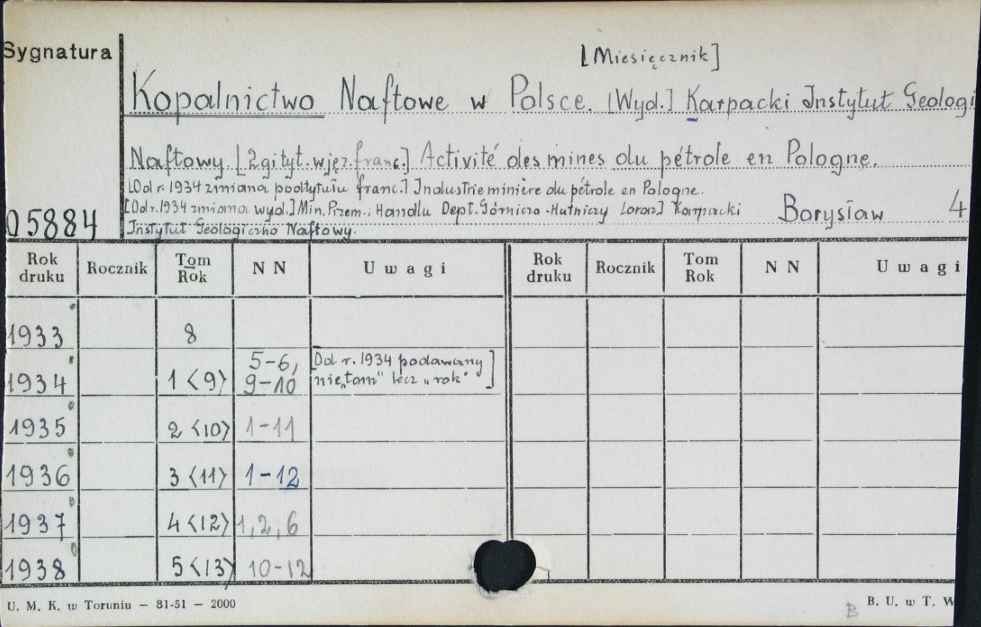 Sygnatura
[Miesięcznik]
Kopalnictwo Naftowe w Polsce. [Wyd.] Karpacki Instytut Geologi
Naftowy. [2gi tyt. w jęz. franc.] Activité des mines du pétrole en Pologne.
[Od r. 1934 zmiana podtytułu franc.] Industrie minière du pétrole en Pologne.
[Od r. 1934 zmiana wyd.] Min. Przem. i Handlu Dept. Górniczo-Hutniczy [oraz] Karpacki Borysław 4
05884 Instytut Geologiczno Naftowy.
Rok druku Rocznik Tom Rok N N Uwagi Rok druku Rocznik Tom Rok N N Uwagi
1933 8
1934 1 <9> 5-6, 9-10 [Od r. 1934 podawany nie „tom" lecz „rok"]
1935 2 <10> 1-11
1936 3 <11> 1-12
1937 4 <12> 1, 2, 6
1938 5 <13> 10-12
U. M. K. w Toruniu — 81-51 — 2000
B B. U. w T. W